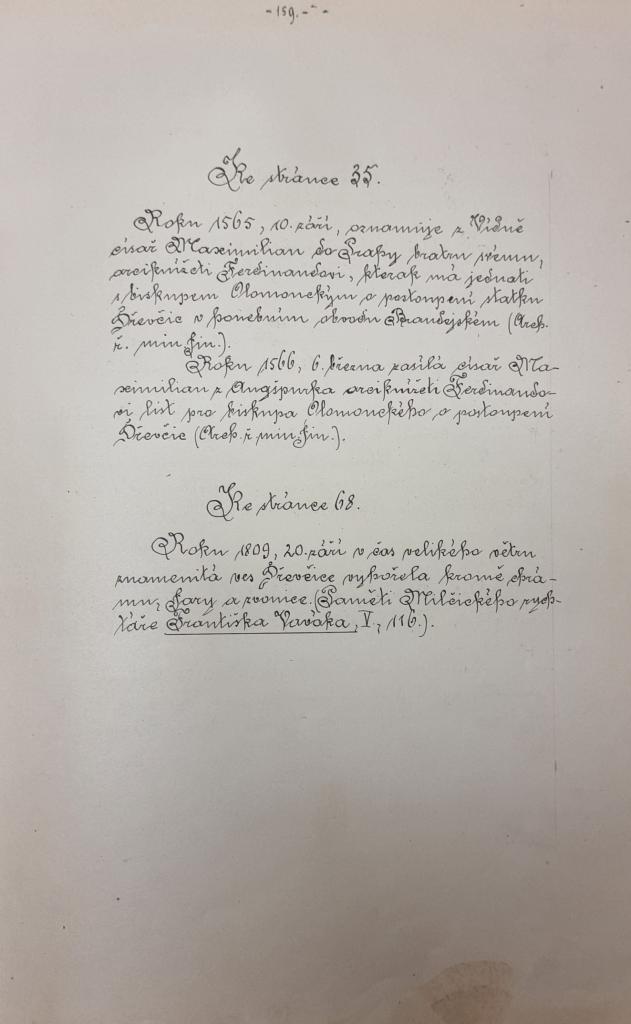 - 159. -
Ke stránce 35.
Roku 1565, 10. září, oznamuje z Vídně
císař Maximilian do Prahy bratru svému,
arciknížeti Ferdinandovi, kterak má jednati
s biskupem Olomouckým o postoupení statku
Dřevčic v honebním obvodu Brandejském (Arch.
ř. min. fin.).
Roku 1566, 6. března zasílá císař Ma-
ximilian z Augšpurka arciknížeti Ferdinando-
vi list pro biskupa Olomouckého o postoupení
Dřevčic (Arch. ř. min. fin.).
Ke stránce 68.
Roku 1809, 20. září v čas velikého větru
znamenitá ves Dřevčice vyhořela kromě chrá-
mu, fary a zvonice. (Paměti Milčického rych-
táře Františka Vaváka, V, 116.).